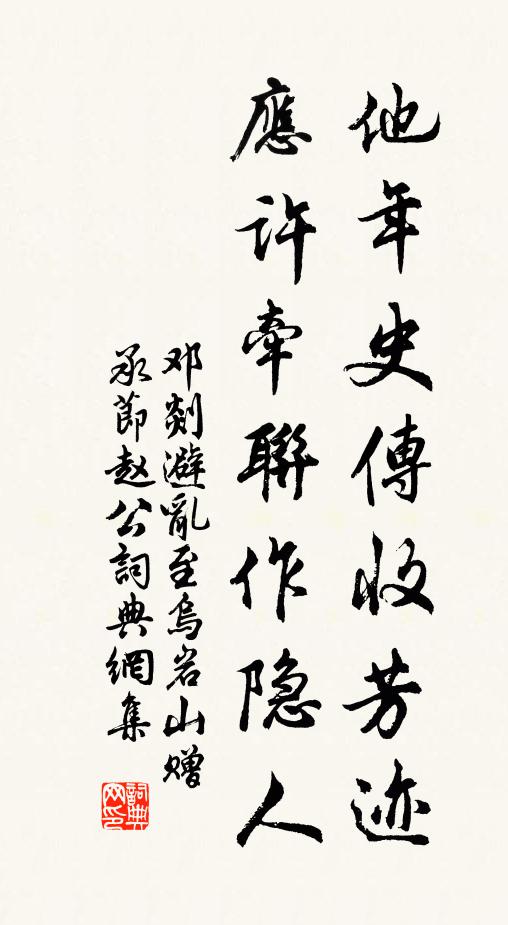 他年史傳收芳迹
應許牽聯作隐人
邓剡避亂至烏岩山赠
承節赵公詞典網集
詞典网印